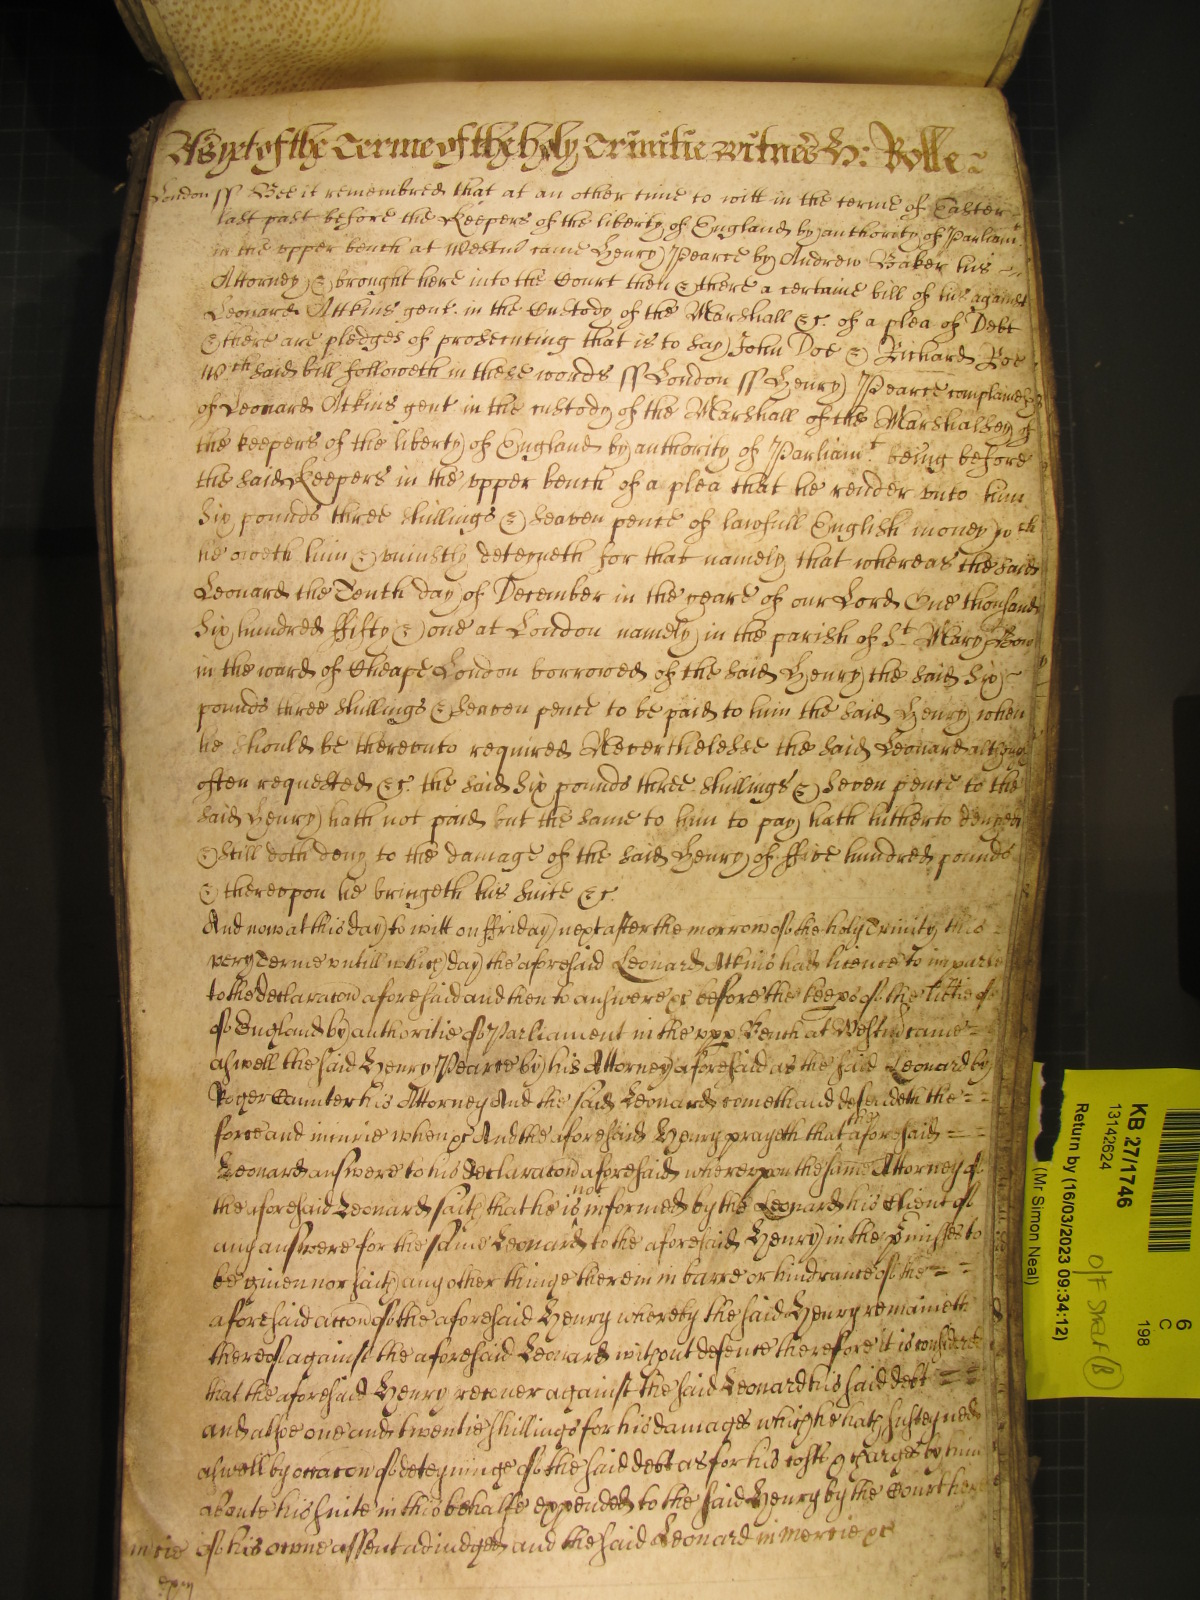 As yet of the Terme of the holy Trinitie witnes H: Rolle
London ss Bee it remembred that at an other time to witt in the terme of Easter
last past before the Keepers of the liberty of England by authority of Parliamt
in the upper bench at Westm came Henry Pearce by Andrew Baker his
Attorney & brought here into the Court then & there a certaine bill of his against
Leonard Atkins gent. in the Custody of the Marshall &c. of a plea of Debt
& there are pledges of prosecuting that is to say John Doe & Richard Roe
Wch said bill followeth in these words ss London ss Henry Pearce complaineth
of Leonard Atkins gent in the custody of the Marshall of the Marshalsey of
the keepers of the liberty of England by authority of Parliamt. being before
the said Keepers in the upper bench of a plea that he render unto him
Six pounds three shillings & seaven pence of lawfull English money wch
he oweth him & uniustly deteyneth for that namely that whereas the said
Leonard the Tenth day of December in the yeare of our Lord One thousand
Six hundred ffifty & one at London namely in the parish of St. Mary Bow
in the ward of Cheape London borrowed of the said Henry the said Six
pounds three shillings & seaven pence to be paid to him the said Henry when
he should be thereunto required Neverthelesse the said Leonard although
often requested &c. the said Six pounds three shillings & seven pence to the
said Henry hath not paid but the same to him to pay hath hitherto denyed
& still doth deny to the damage of the said Henry of ffive hundred pounds
& thereupon he bringeth his suite &c.
And now at this day to witt on ffriday next after the morrow of the holy Trinity this
very Terme untill which day the aforesaid Leonard Atkins had licence to imparle
to the declaracon aforesaid and then to answere &c before the keeps of the libtie of
of England by authoritie of Parliament in the upp Bench at Westm came
aswell the said Henry Pearce by his Attorney aforesaid as the said Leonard by
Roger Caunter his Attorney And the said Leonard cometh and defendeth the
force and iniurie when &c And the aforesaid Henry prayeth that the aforesaid
Leonard answere to his declaracon aforesaid whereupon the same Attorney of
the aforesaid Leonard saith that he is not informed by the Leonard his Client of
any answere for the same Leonard to the aforesaid Henry in the pmisses to
be given nor saith any other thinge therein in barre or hindrance of the
aforesaid accon of the aforesaid Henry whereby the said Henry remaineth
thereof against the aforesaid Leonard without defence therefore it is considered
that the aforesaid Henry recover against the said Leonard his said debt
and alsoe one and twentie shillings for his damages which he hath susteyned
aswell by occacon of deteyninge of the said debt as for his costs & charges by him
aboute his suite in this behalfe expended to the said Henry by the Court here
mcie of his owne assent adiudged and the said Leonard in mercie &c
KB 27/1746
13142624
Return by (16/03/2023 09:34:12)
(Mr Simon Neal)
6
C
198